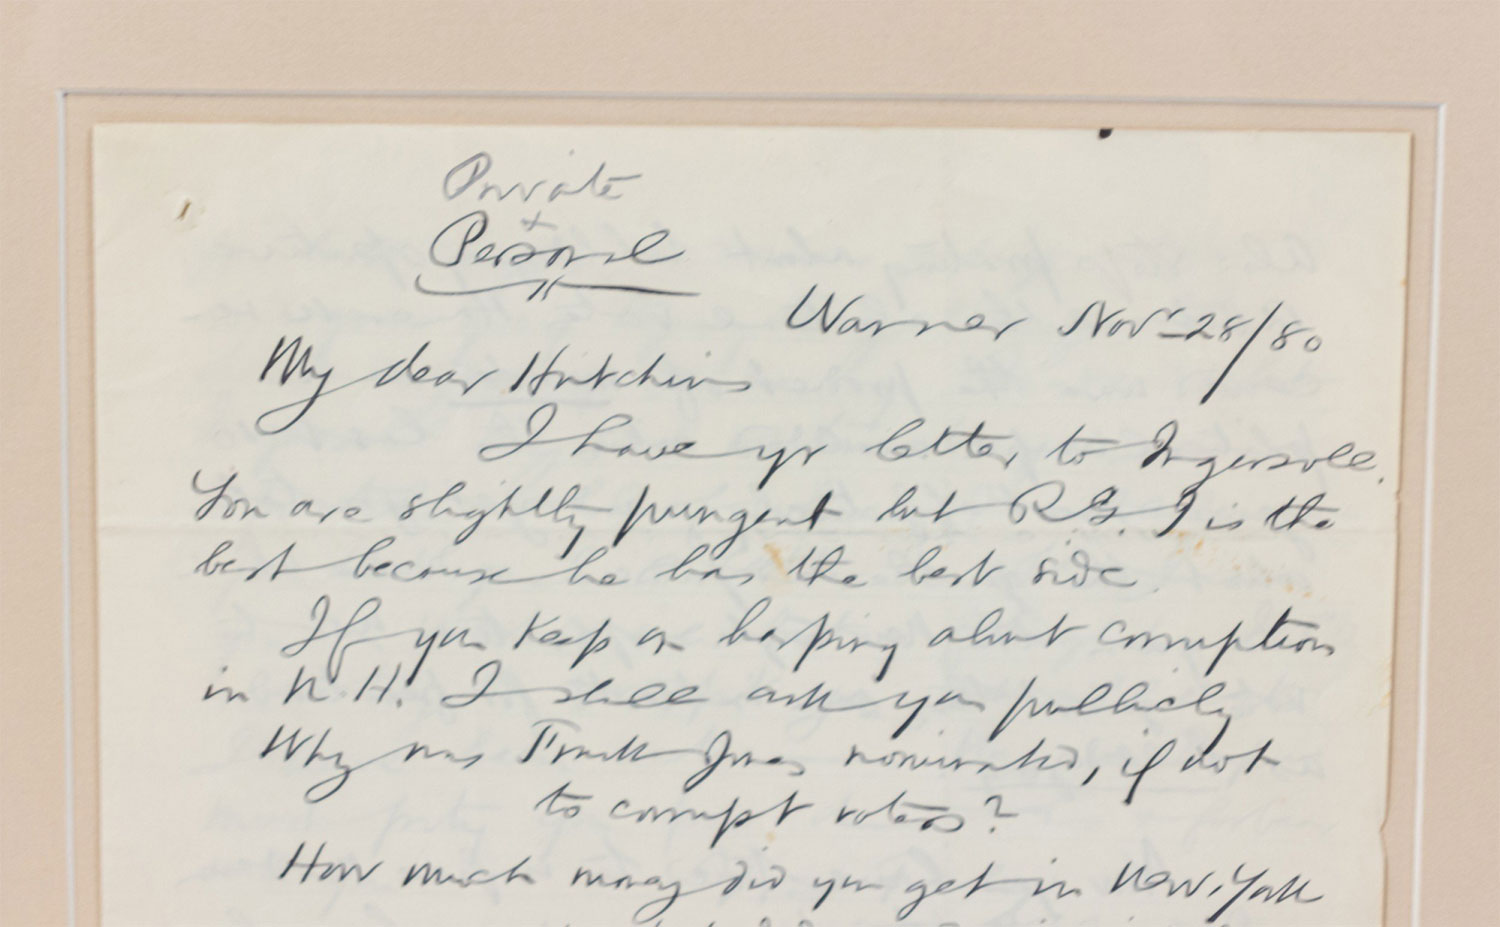 Private
+
Personal
Warner Novr 28/80
My dear Hutchins
I have yr letter to Ingersoll.
You are slightly pungent but R.G. I is the
best because he has the best side.
If you keep on harping about corruption
in N.H. I shall ask you publicly
Why was Frank Jones nominated, if not
to corrupt voters?
How much money did you get in New York